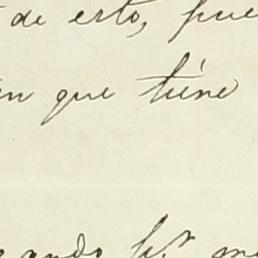 de esto, pue
en que tiene
ando Sr. me